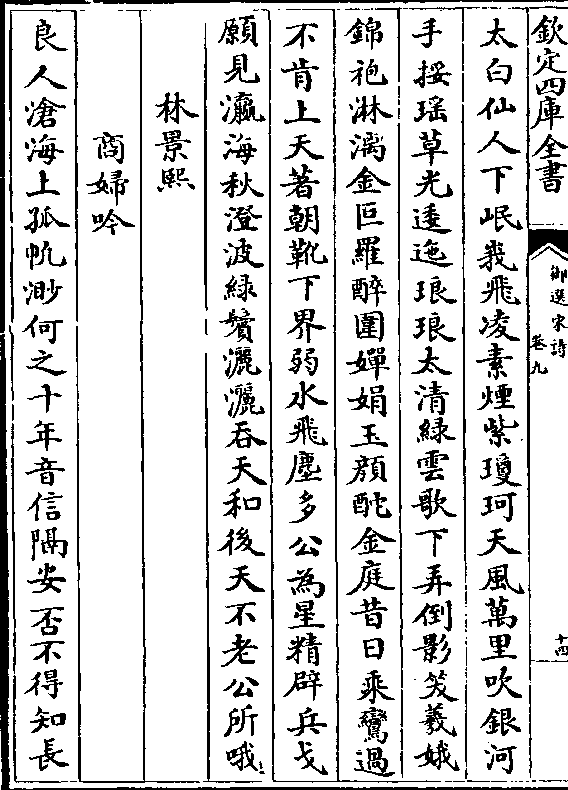 欽定四庫全書
御選宋詩
卷九
十四
太白仙人下岷峩飛凌素煙紫瓊珂天風萬里吹銀河
手挼瑶草光逶迤琅琅太清緑雲歌下弄倒影笑羲娥
錦袍淋漓金叵羅醉圍嬋娟玉顔酡金庭昔日乘鸞過
不肯上天著朝靴下界弱水飛塵多公為星精辟兵戈
願見瀛海秋澄波緑鬢灑灑吞天和後天不老公所哦
林景熙
商婦吟
良人滄海上孤帆渺何之十年音信隔安否不得知長